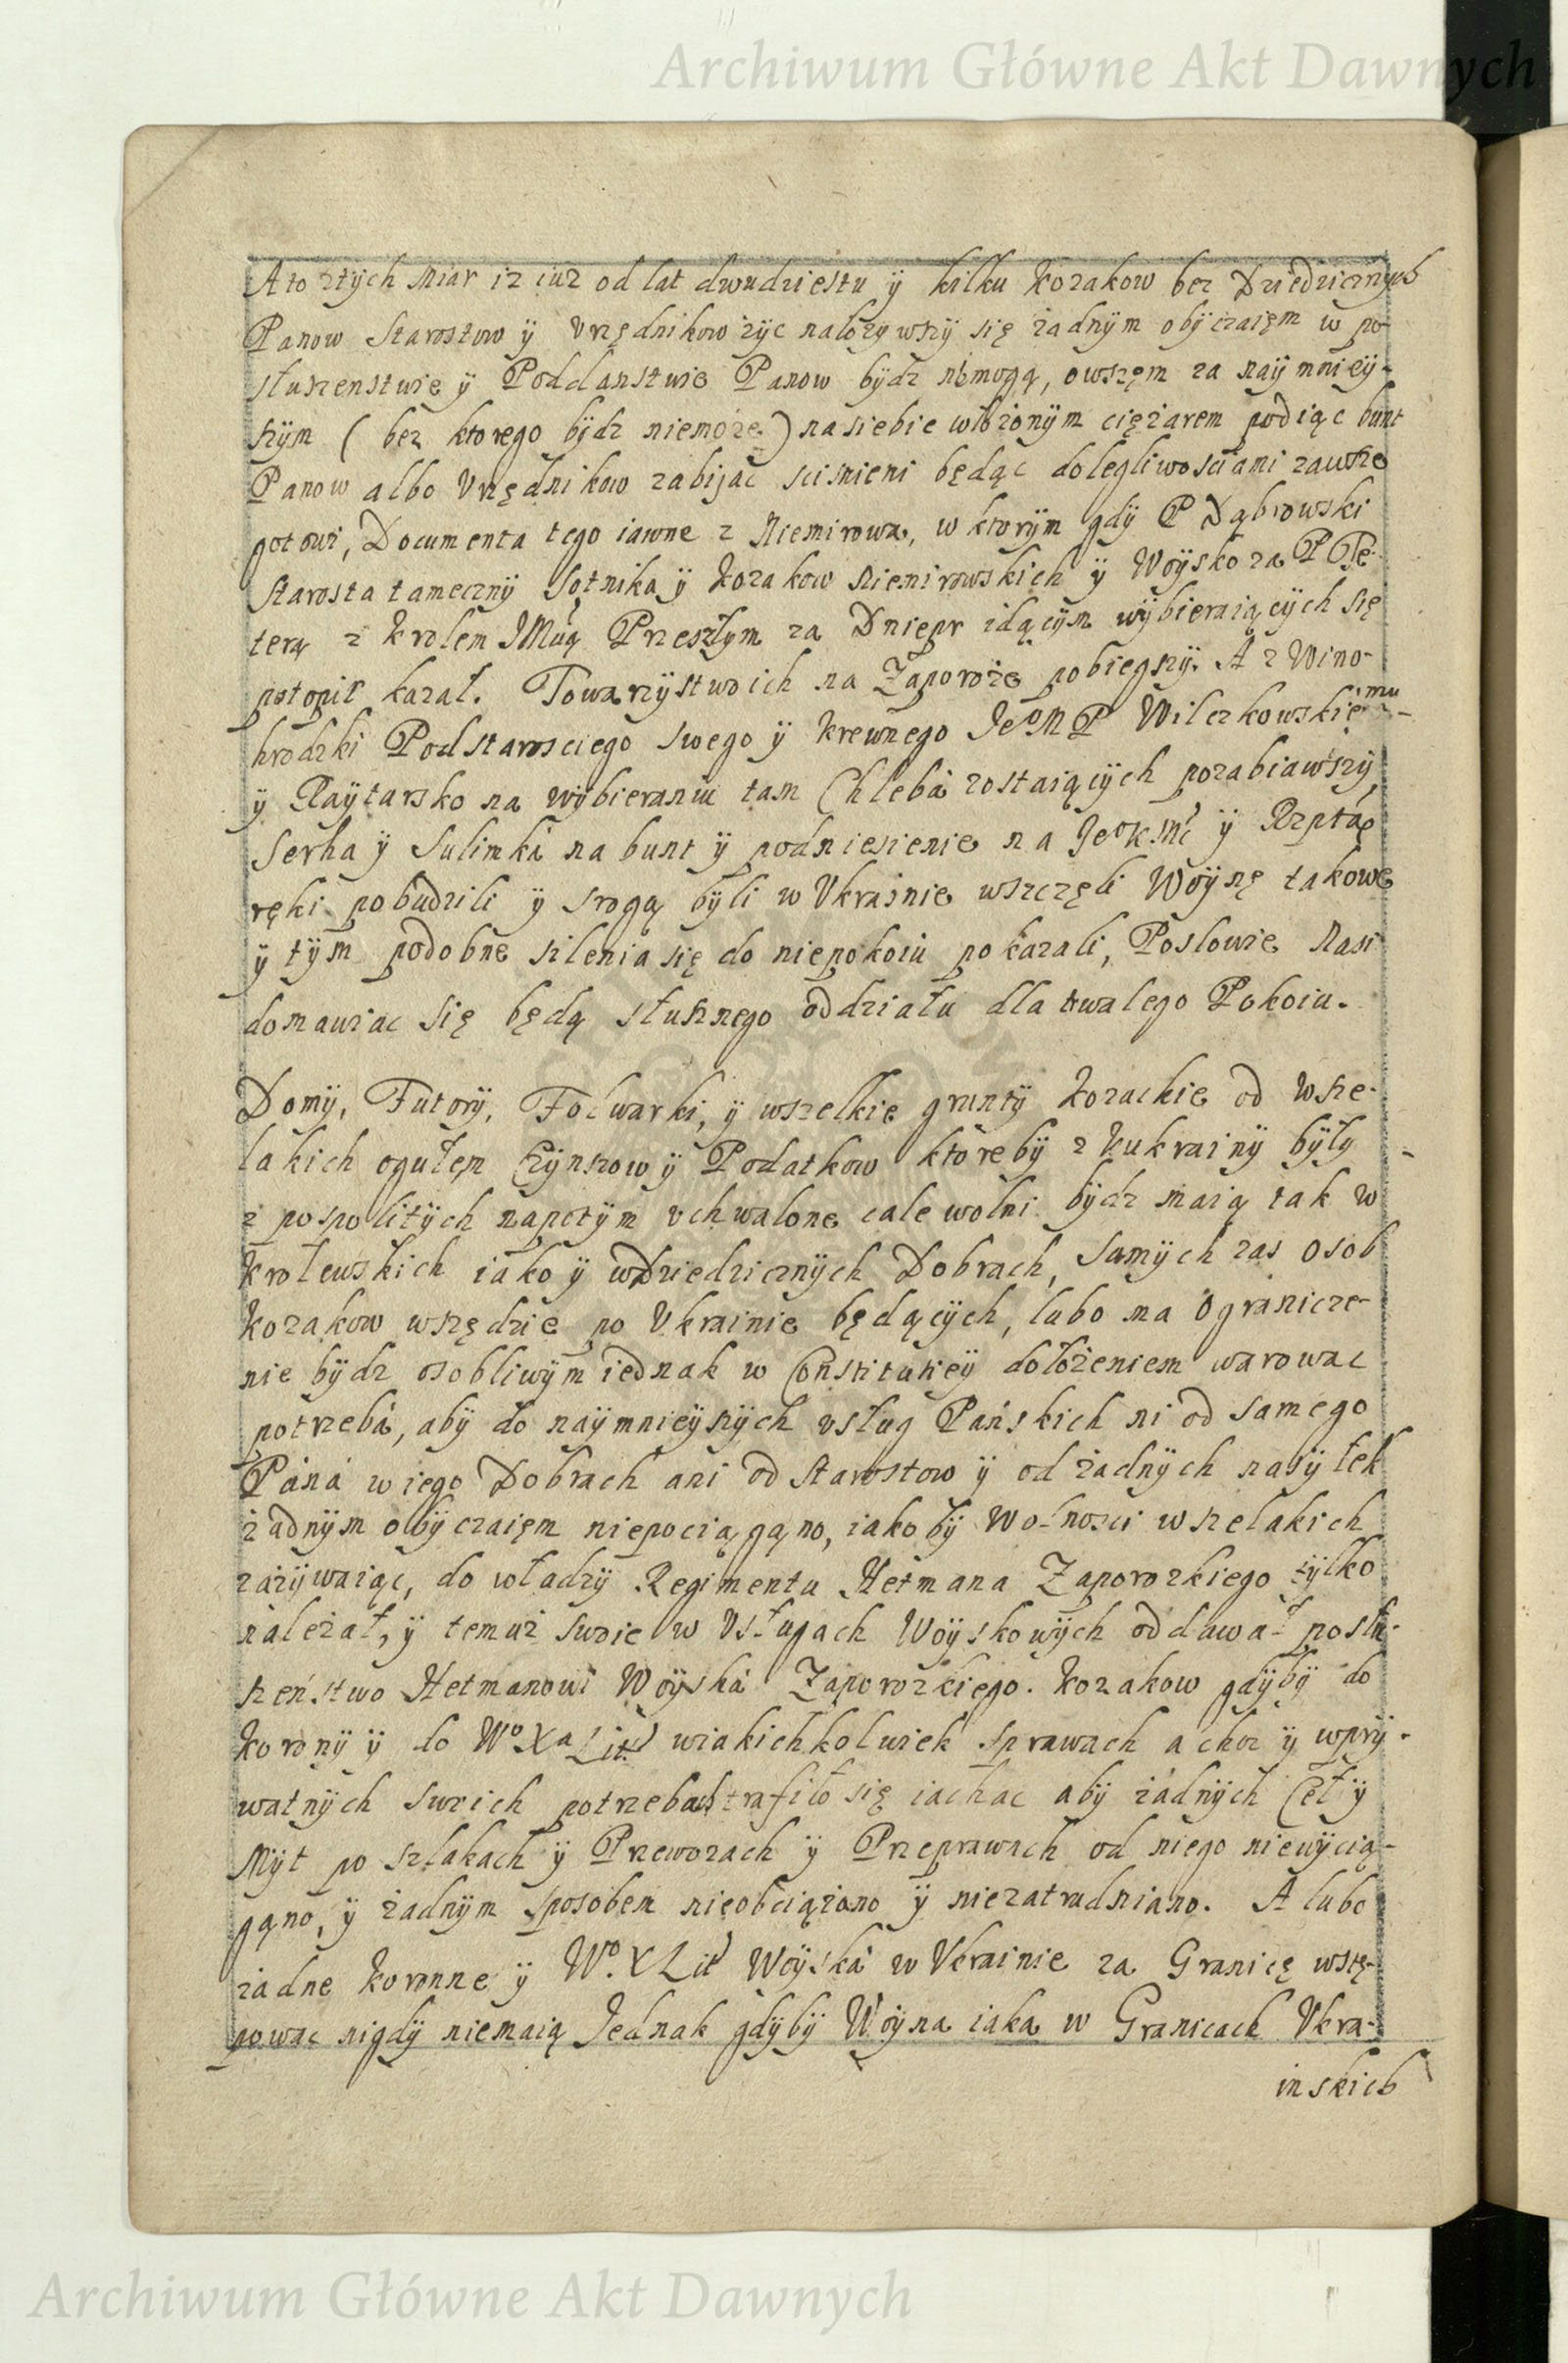 Archiwum Główne Akt Dawnych
A to ztych miar iz iuz od lat dwudziestu ÿ kilku kozakow bez Dziedzicznych
Panow Starostow ÿ Vrzędnikow zÿc nalożÿwszÿ się żadnÿm obÿczaięm w po-
słuszenstwie ÿ Poddanstwie Panow bÿdz niemogą, owszęm za naÿmnieÿ-
szÿm ( bez ktorego bÿdz niemoże ) na siebie włożonÿm ciężarem podiąc bunt
Panow albo Vrzędnikow zabijac scisnieni będąc dolegliwosciami zawsze
gotowi, Documenta tego iawne z Niemirowa, w ktorÿm gdÿ P Dąbrowski
Starosta tamecznÿ Sotnika ÿ kozakow niemirowskich ÿ Woÿsko za P Pe-
terą z krolem JMuą Przeszłym za Dniepr idącÿm wÿbieraiącÿch się
potopić kazał. Towarzÿstwo ich na Zaporoże pobiegszÿ. A z Wino-
hrodzki Podstarosciego swego ÿ krewnego JeoM P Wilczkowskiemu
ÿ Raÿtarsko na wÿbieraniu tam Chleba zostaiącÿch pozabiawszÿ,
Serha ÿ Sulimka na bunt ÿ podniesienie na JeoKMć ÿ Rzptąę
ręki pobudzili ÿ srogą bÿli w Vkrainie wszczęli Woÿnę takowe
ÿ tÿm podobne silenia się do niepokoiu pokazali, Poslowie Nasi
domawiac się będą słusznego oddziału dla trwalego Pokoiu.
Domÿ, Futorÿ, Folwarki, ÿ wszelkie gruntÿ kozackie od wsze-
lakich ogułem Czÿnszow ÿ Podatkow ktorebÿ z kukrainÿ bÿłÿ
z pospolitÿch napotÿm vchwalone cale wolni bÿdz maią tak w
krolewskich iako ÿ w Dziedzicznÿch Dobrach, Samÿch zas osob
kozakow wszędzie po Vkrainie będącÿch, lubo ma ogranicze-
nie bÿdz osobliwÿm iednak w Constitutieÿ dołożeniem warowac
potrzeba, abÿ do naÿmnieÿszÿch vsług Pańskich ni od samego
Pána w iego Dobrach ani od Starostow ÿ od żadnÿch nasÿłek
żadnÿm obÿczaięm niepociągąno, iakobÿ Wolnosci wszelakich
zażÿwaiąc, do władzÿ Regimentu Hetmana Zaporozkiego tÿlko
należał, ÿ temuż swoie w Vsługach Woÿskowÿch oddawał poslu-
szeństwo Hetmanowi Woÿska Zaporozkiego. kozakow gdÿbÿ do
koronÿ ÿ do Wo Xa Lit wiakichkolwiek sprawach a choc ÿ wprÿ-
watnÿch swoich potrzebach trafiło się iachac abÿ żadnÿch Cełÿ
Mÿt po szlakach ÿ Przewozach ÿ Przeprawach od niego niewÿcią-
gąno, ÿ żadnÿm sposobem nieobciążono ÿ niezatrudniano. A lubo
żadne koronne ÿ Wo. X Lit Woÿska w Vkrainie za Granicę wstę-
powac nigdÿ niemaią Jednak gdÿbÿ Woÿna iaka w Granicach Vkra-
inskich
Archiwum Główne Akt Dawnych